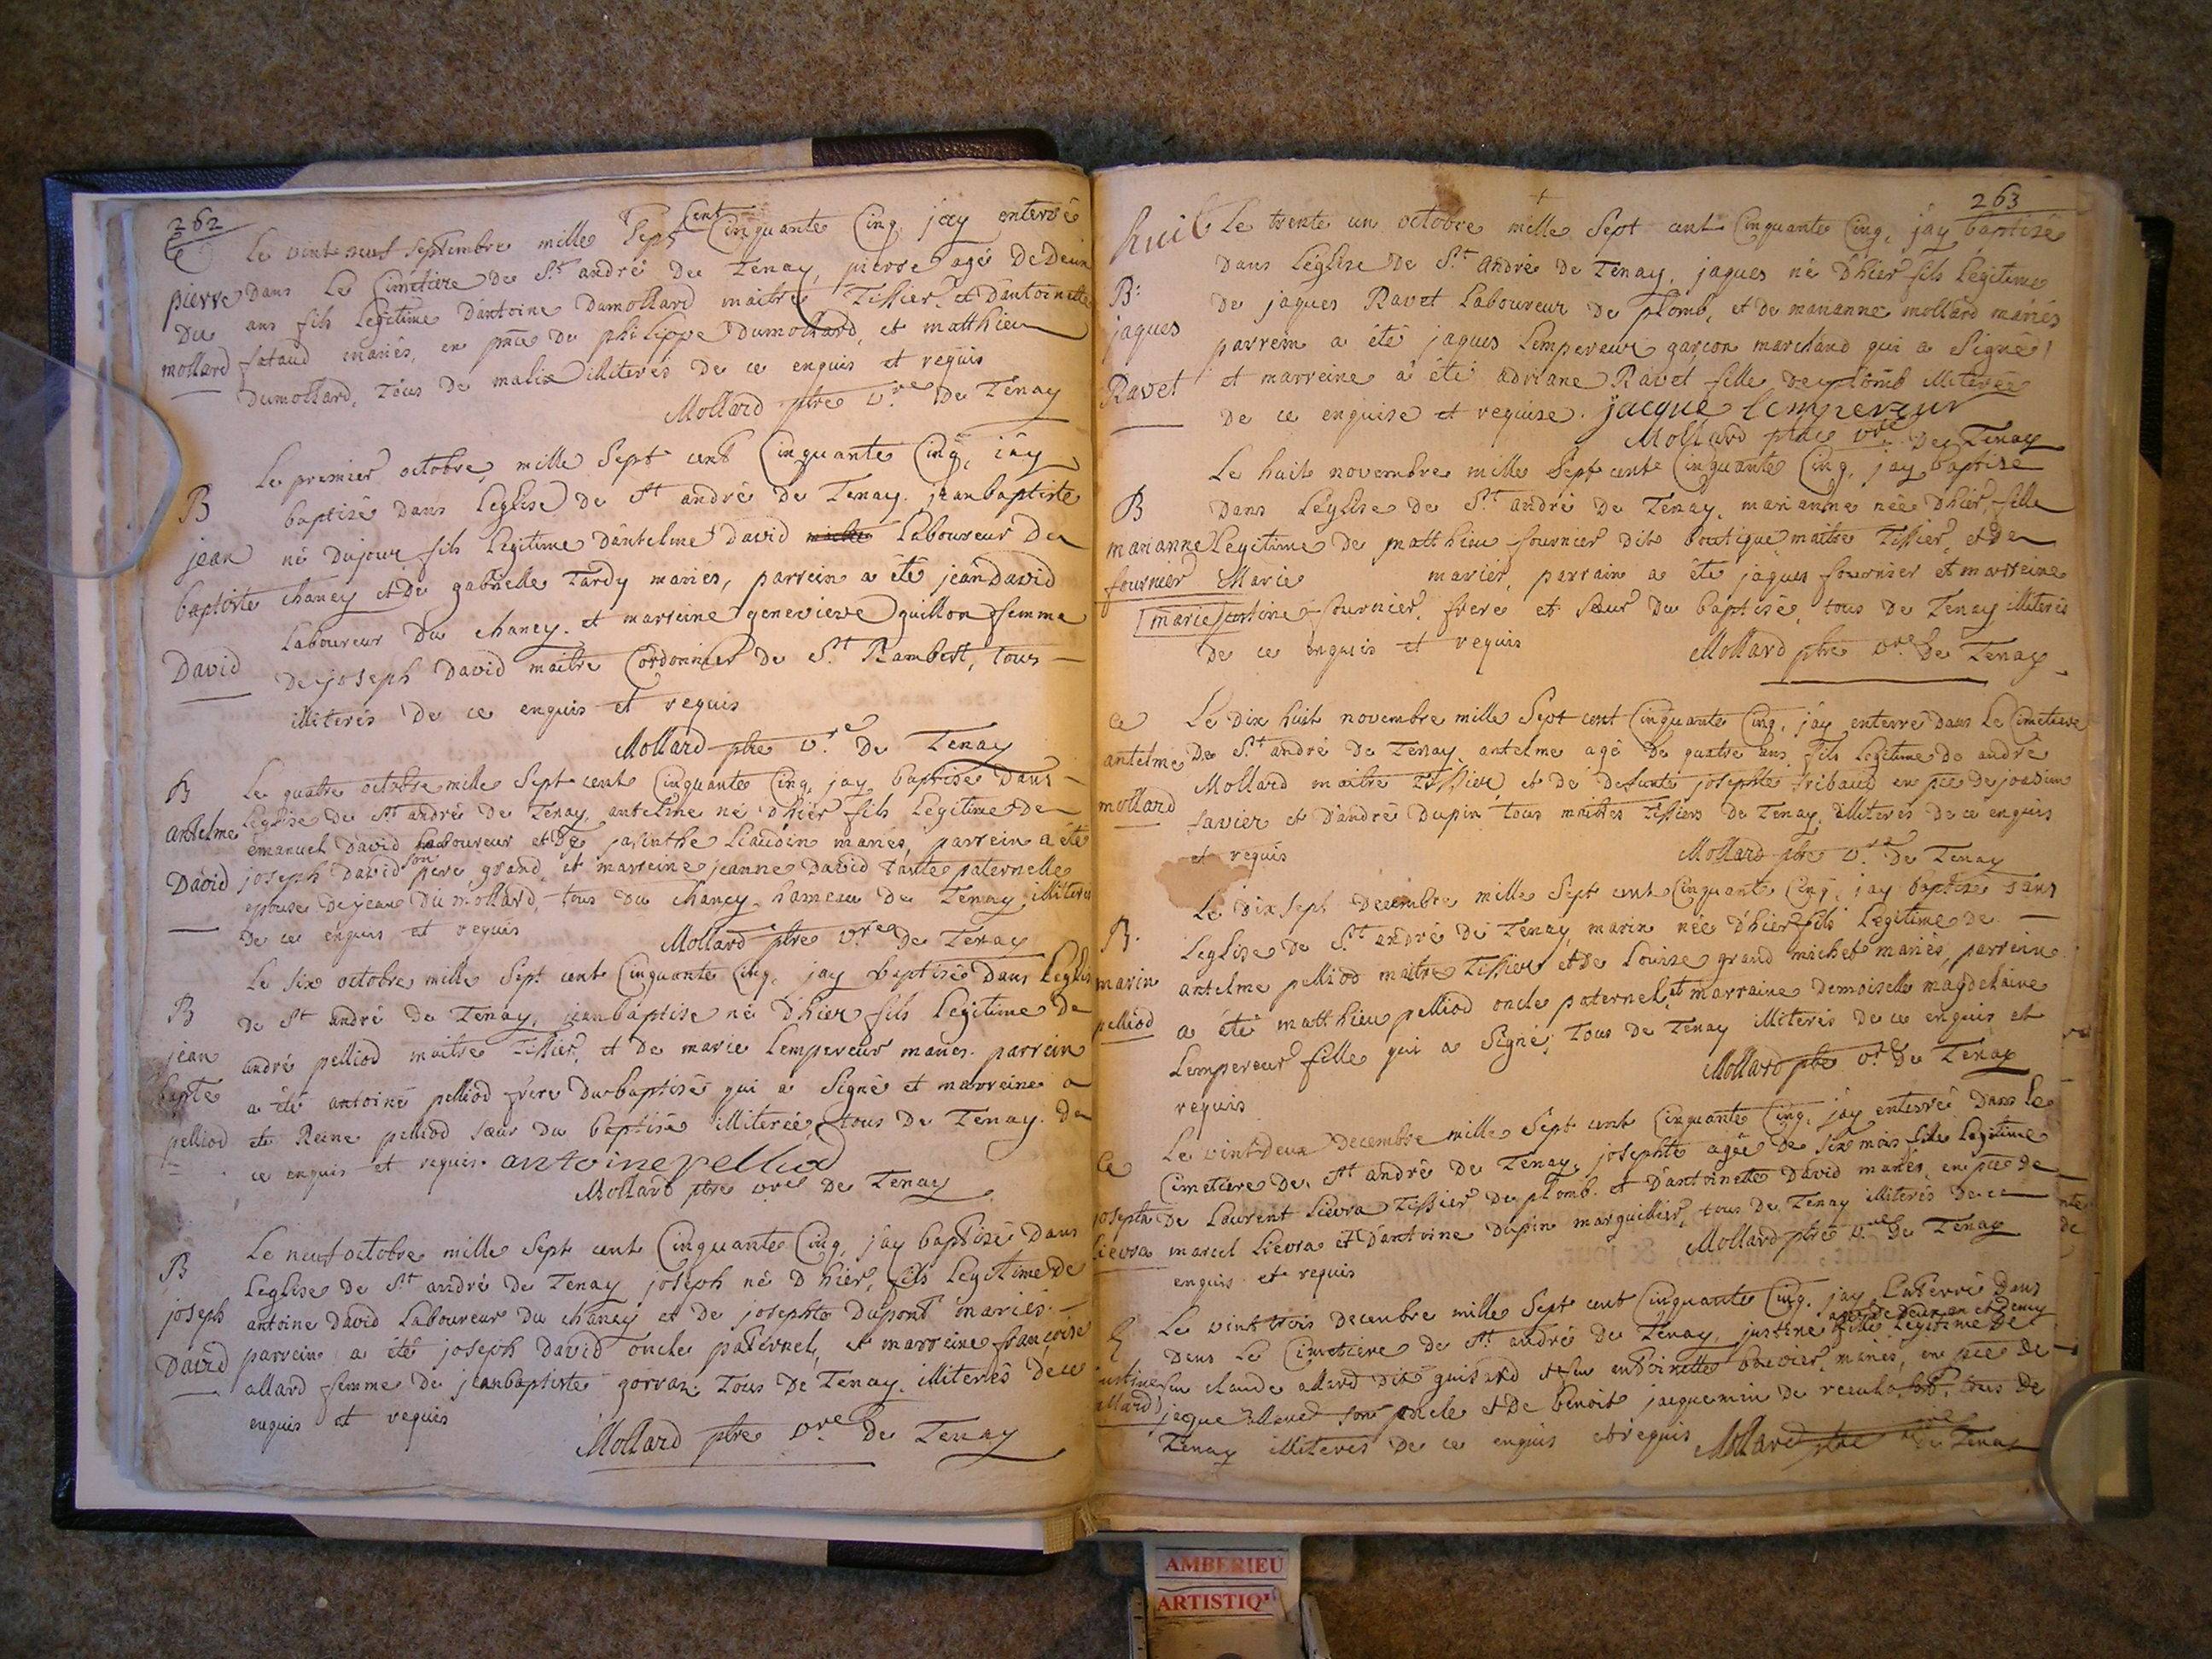 262
Le vint neuf septembre mille Sept Cent Cinquante Cinq, jay enterré
pierre dans Le Cimetiere de St andré de Tenay, pierre agé De Deux
du ans fils Legitime D'antoine Dumollard maitre Tissier et D'antoinette
mollard fataud mariés, en pnce de philippe Dumollard, et matthieu
Dumollard, Tous de malix illiterés de ce enquis et requis
Mollard ptre v.re De Tenay
Le premier octobre, mille Sept cent Cinquante Cinq, jay
B baptisé dans Leglise de St andré de Tenay, jean baptiste
jean né dujour fils Legitime D'antelme David Laboureur du
baptiste chaney et de gabrielle Tardy mariés, parrein a été jean David
Laboureur du chaney et marreine genevieve guillon femme
David De joseph David maitre Cordonnier de St Rambert, tous
illiterés de ce enquis et requis
Mollard ptre v.re De Tenay
B Le quatre octobre mille Sept cent Cinquante Cinq, jay baptisé dans
antelme Leglise de St andré de Tenay, antelme né d'hier fils Legitime de
emanuel David Laboureur et De jacinthe Liaudin mariés, parrein a été
David joseph David son pere grand, et marreine jeanne David Tante paternelle
epouse de jean Du mollard, tous du chaney hameau de Tenay illiterés
de ce enquis et requis
Mollard ptre v.re de Tenay
Le six octobre mille Sept cent Cinquante Cinq, jay baptisé dans Leglise
B de St andré de Tenay, jean baptise né d'hier fils Legitime de
jean andré pelliod maitre Tissier, et de marie Lempereur mariés. parrein
bapte a été antoine pelliod frere du baptisé qui a Signé et marreine a
pelliod eté Reine pelliod sœur du baptisé illiterée, tous de Tenay. de
ce enquis et requis. antoine pelliod
Mollard ptre v.re de Tenay
Le neuf octobre mille Sept cent Cinquante Cinq, jay baptisé dans
B Leglise de St andré de Tenay joseph né d'hier, fils Legitime de
joseph antoine David Laboureur du chaney et de josephte Dupont mariés
David parrein a été joseph David oncle paternel, et marreine françoise
allard femme de jeanbaptiste gorraz Tous De Tenay. illiterés de ce
enquis et requis
Mollard ptre v.re de Tenay
263
Le trente un octobre mille Sept cent Cinquante Cinq, jay baptisé
dans Léglise De St andré De Tenay, jaques né d'hier fils Legitime
B: De jaques Ravet Laboureur De plomb, et De marianne mollard mariés
jaques parrein a été jaques Lempereur garçon marchand qui a Signé
Ravet et marreine a été adriane Ravet fille De plomb illiterée
De ce enquise et requise. jacque lempereur
Mollard ptre vre De Tenay
Le huit novembre mille Sept cent Cinquante Cinq, jay baptisé
B Dans Léglise de St andré De Tenay, marianne née D'hier, fille
marianne Legitime de matthieu fournier dit boutique maitre Tissier, et De
fournier Marie mariér, parrain a été jaques fournier et marreine
marie fournier, frere et sœur du baptisé, tous de Tenay illiterés
de ce enquis et requis
Mollard ptre v.re de Tenay
Le Dix huit novembre mille Sept cent Cinquante Cinq, jay enterré dans Le Cimetiere
antelme De St andré De Tenay, antelme agé De quatre ans fils Legitime de andré
Mollard maitre Tissier et de defunte josephte Tribaud en pce de joachim
mollard favier et D'andré Dupin tous maitres Tissiers De Tenay, illiterés de ce enquis
et requis
Mollard ptre v.re De Tenay
Le Dix sept Decembre mille Sept cent Cinquante Cinq, jay baptisé dans
B. Leglise de St andré de Tenay, marin née d'hier fils Legitime de
marin antelme pelliod maitre Tissier et De Louise grand michet mariés, parrein
pelliod a été matthieu pelliod oncle paternel, et marraine demoiselle magdelaine
Lempereur fille qui a Signé, Tous de Tenay illiterés de ce enquis et
requis
Mollard ptre v.re De Tenay
Le vint deux Decembre mille Sept cent Cinquante Cinq, jay enterré dans Le
Cimetiere De St andré De Tenay, josephte agée de six mois fille Legitime
josephte De Laurent Lievra Tissier de plomb. et D'antoinette David mariés, en pce de
Lievra marcel Lievra et D'antoine Dupin marguillier, tous de Tenay illiterés de ce
enquis et requis
Mollard ptre v.re De Tenay
Le vint trois Decembre mille Sept cent Cinquante Cinq. jay Enterré dans
agée De Deux an et Demy
dans Le Cimetiere de St andré de Tenay, justine fille Legitime De
justine feu claude allard dit guisard et feu antoinette bouvier mariés, en pce de
allard jaque allard son oncle et De benoit jacquemin de tous De
Tenay illiterés de ce enquis et requis
Mollard ptre vre De Tenay
AMBERIEU
ARTISTIQ